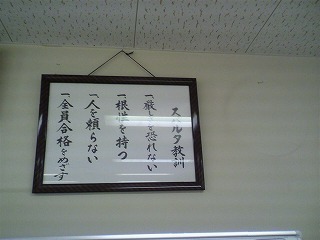 スパルタ教訓
一、厳しさを恐れない
一、根性を持つ
一、人を頼らない
一、全員合格をめざす